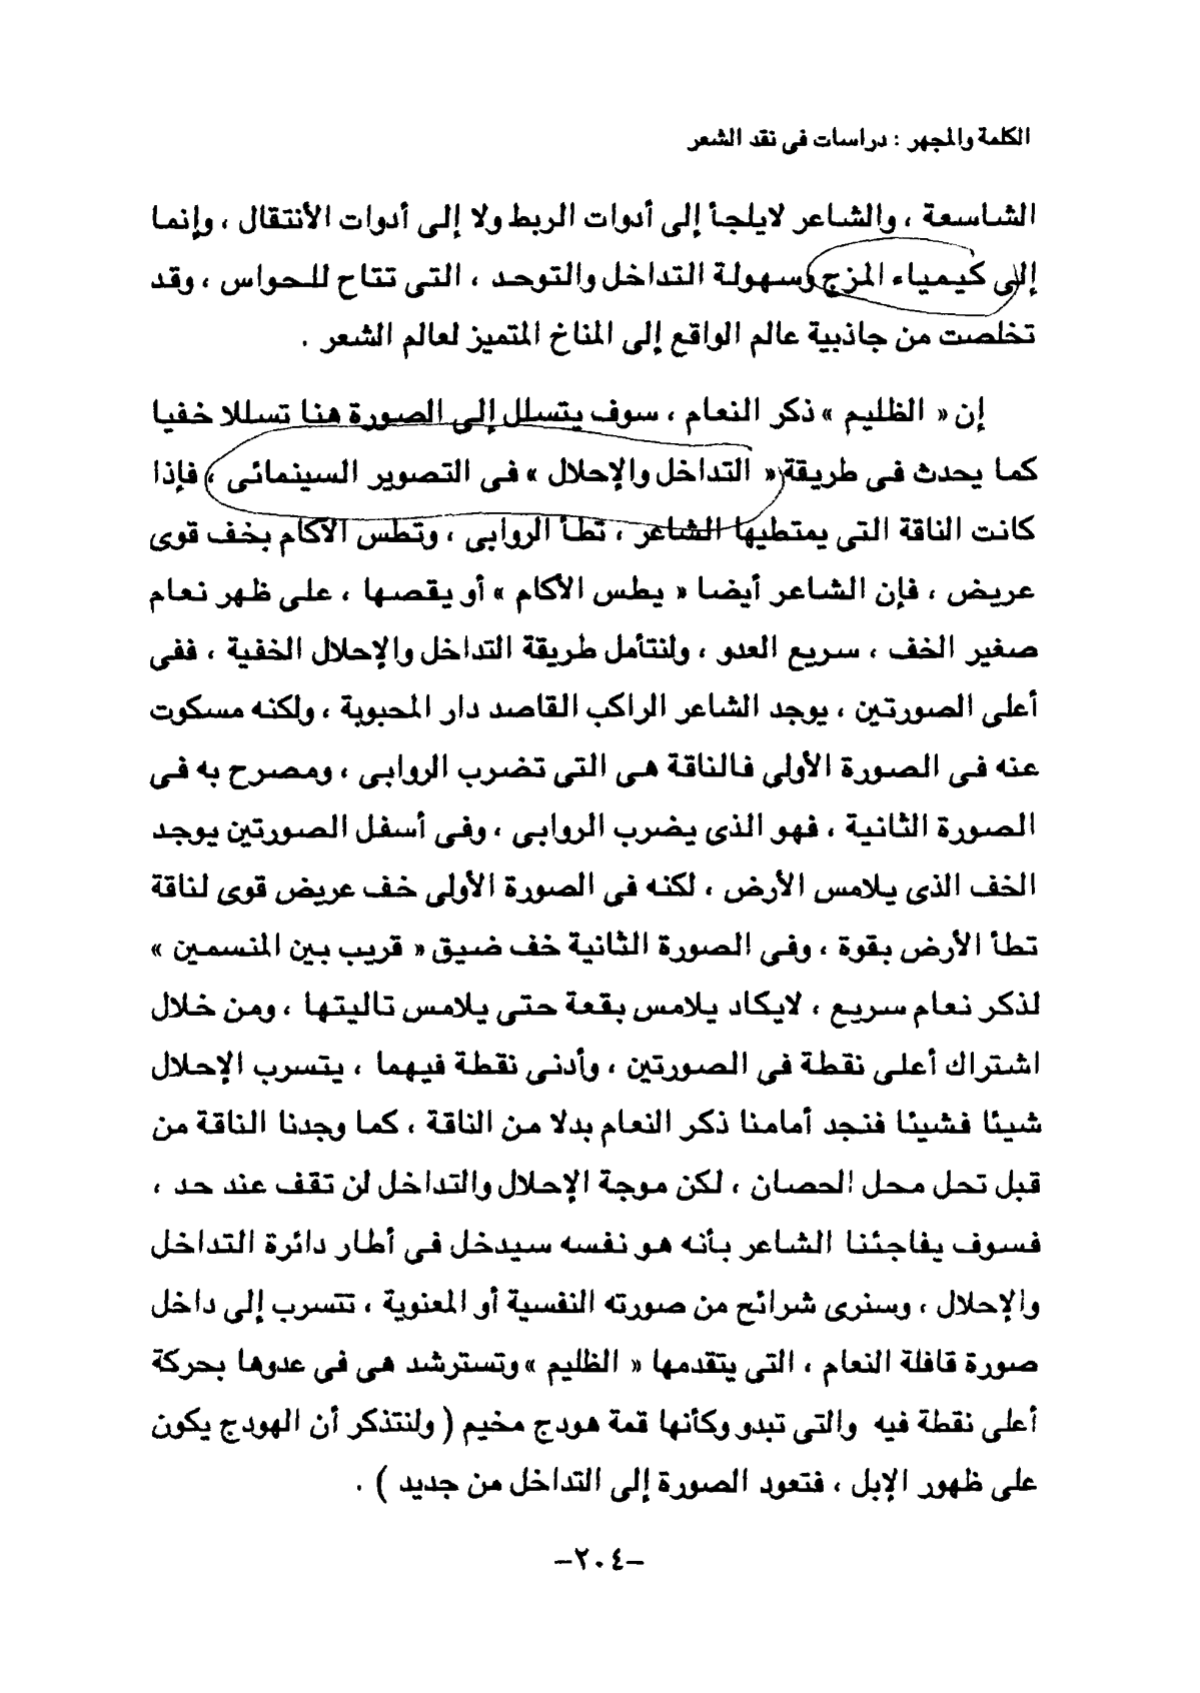 الكلمة والمجهر : دراسات فى نقد الشعر
الشاسعة ، والشاعر لايلجأ إلى أدوات الربط ولا إلى أدوات الأنتقال ، وإنما
إلى كيمياء المزج وسهولة التداخل والتوحد ، التى تتاح للحواس ، وقد
تخلصت من جاذبية عالم الواقع إلى المناخ المتميز لعالم الشعر .
إن « الظليم » ذكر النعام ، سوف يتسلل إلى الصورة هنا تسللا خفيا
كما يحدث فى طريقة « التداخل والإحلال » فى التصوير السينمائى ، فإذا
كانت الناقة التى يمتطيها الشاعر ، تطأ الروابى ، وتطس الآكام بخف قوى
عريض ، فإن الشاعر أيضا « يطس الأكام » أو يقصها ، على ظهر نعام
صغير الخف ، سريع العدو ، ولنتأمل طريقة التداخل والإحلال الخفية ، ففى
أعلى الصورتين ، يوجد الشاعر الراكب القاصد دار المحبوبة ، ولكنه مسكوت
عنه فى الصورة الأولى فالناقة هى التى تضرب الروابى ، ومصرح به فى
الصورة الثانية ، فهو الذى يضرب الروابى ، وفى أسفل الصورتين يوجد
الخف الذى يلامس الأرض ، لكنه فى الصورة الأولى خف عريض قوى لناقة
تطأ الأرض بقوة ، وفى الصورة الثانية خف ضيق « قريب بين المنسمين »
لذكر نعام سريع ، لايكاد يلامس بقعة حتى يلامس تاليتها ، ومن خلال
اشتراك أعلى نقطة فى الصورتين ، وأدنى نقطة فيهما ، يتسرب الإحلال
شيئا فشيئا فنجد أمامنا ذكر النعام بدلا من الناقة ، كما وجدنا الناقة من
قبل تحل محل الحصان ، لكن موجة الإحلال والتداخل لن تقف عند حد ،
فسوف يفاجئنا الشاعر بأنه هو نفسه سيدخل فى أطار دائرة التداخل
والإحلال ، وسنرى شرائح من صورته النفسية أو المعنوية ، تتسرب إلى داخل
صورة قافلة النعام ، التى يتقدمها « الظليم » وتسترشد هى فى عدوها بحركة
أعلى نقطة فيه والتى تبدو وكأنها قمة هودج مخيم ( ولنتذكر أن الهودج يكون
على ظهور الإبل ، فتعود الصورة إلى التداخل من جديد ) .
–٢٠٤–